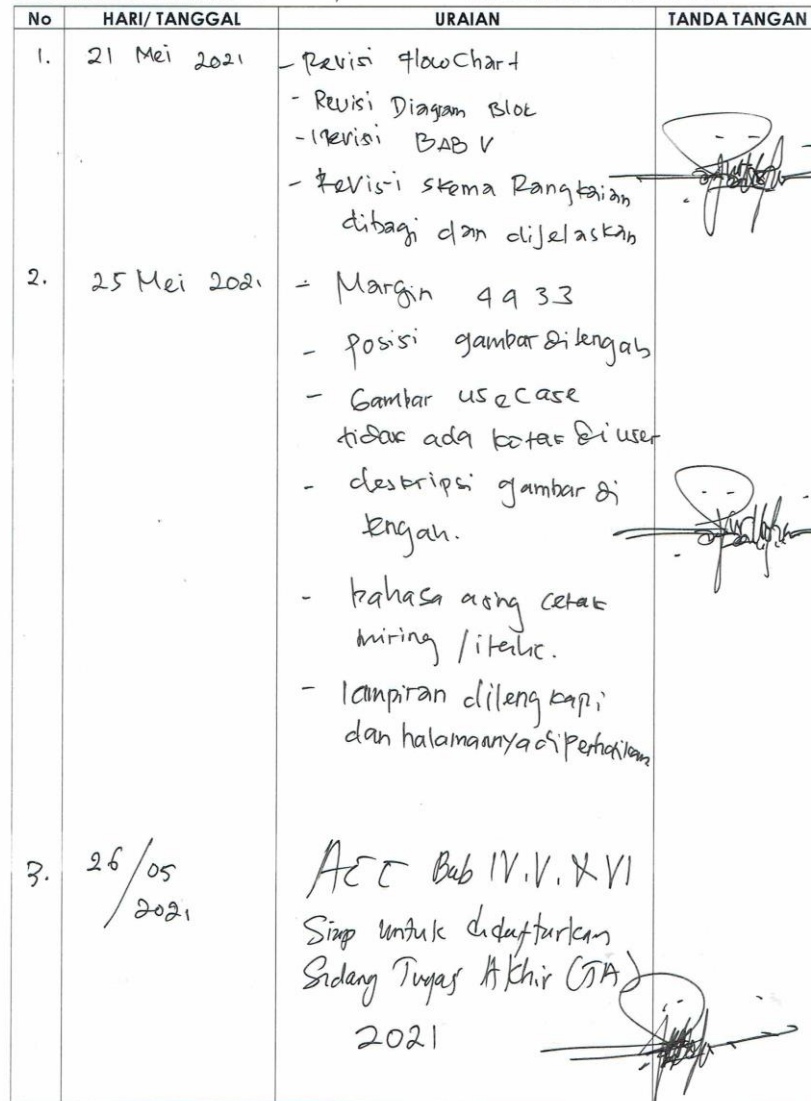 No HARI/ TANGGAL URAIAN TANDA TANGAN
1. 21 Mei 2021 - Revisi FlowChart
- Revisi Diagram Blok
- Revisi BAB V
- Revisi skema Rangkaian
dibagi dan dijelaskan
2. 25 Mei 2021 - Margin 4 4 3 3
- Posisi gambar ditengah
- Gambar usecase
tidak ada kotak di user
- deskripsi gambar di
tengah.
- bahasa asing cetak
miring / italic.
- lampiran dilengkapi
dan halamannya diperhatikan
3. 26/05 2021 ACC Bab IV. V. & VI
Siap untuk didaftarkan
Sidang Tugas Akhir (TA)
2021